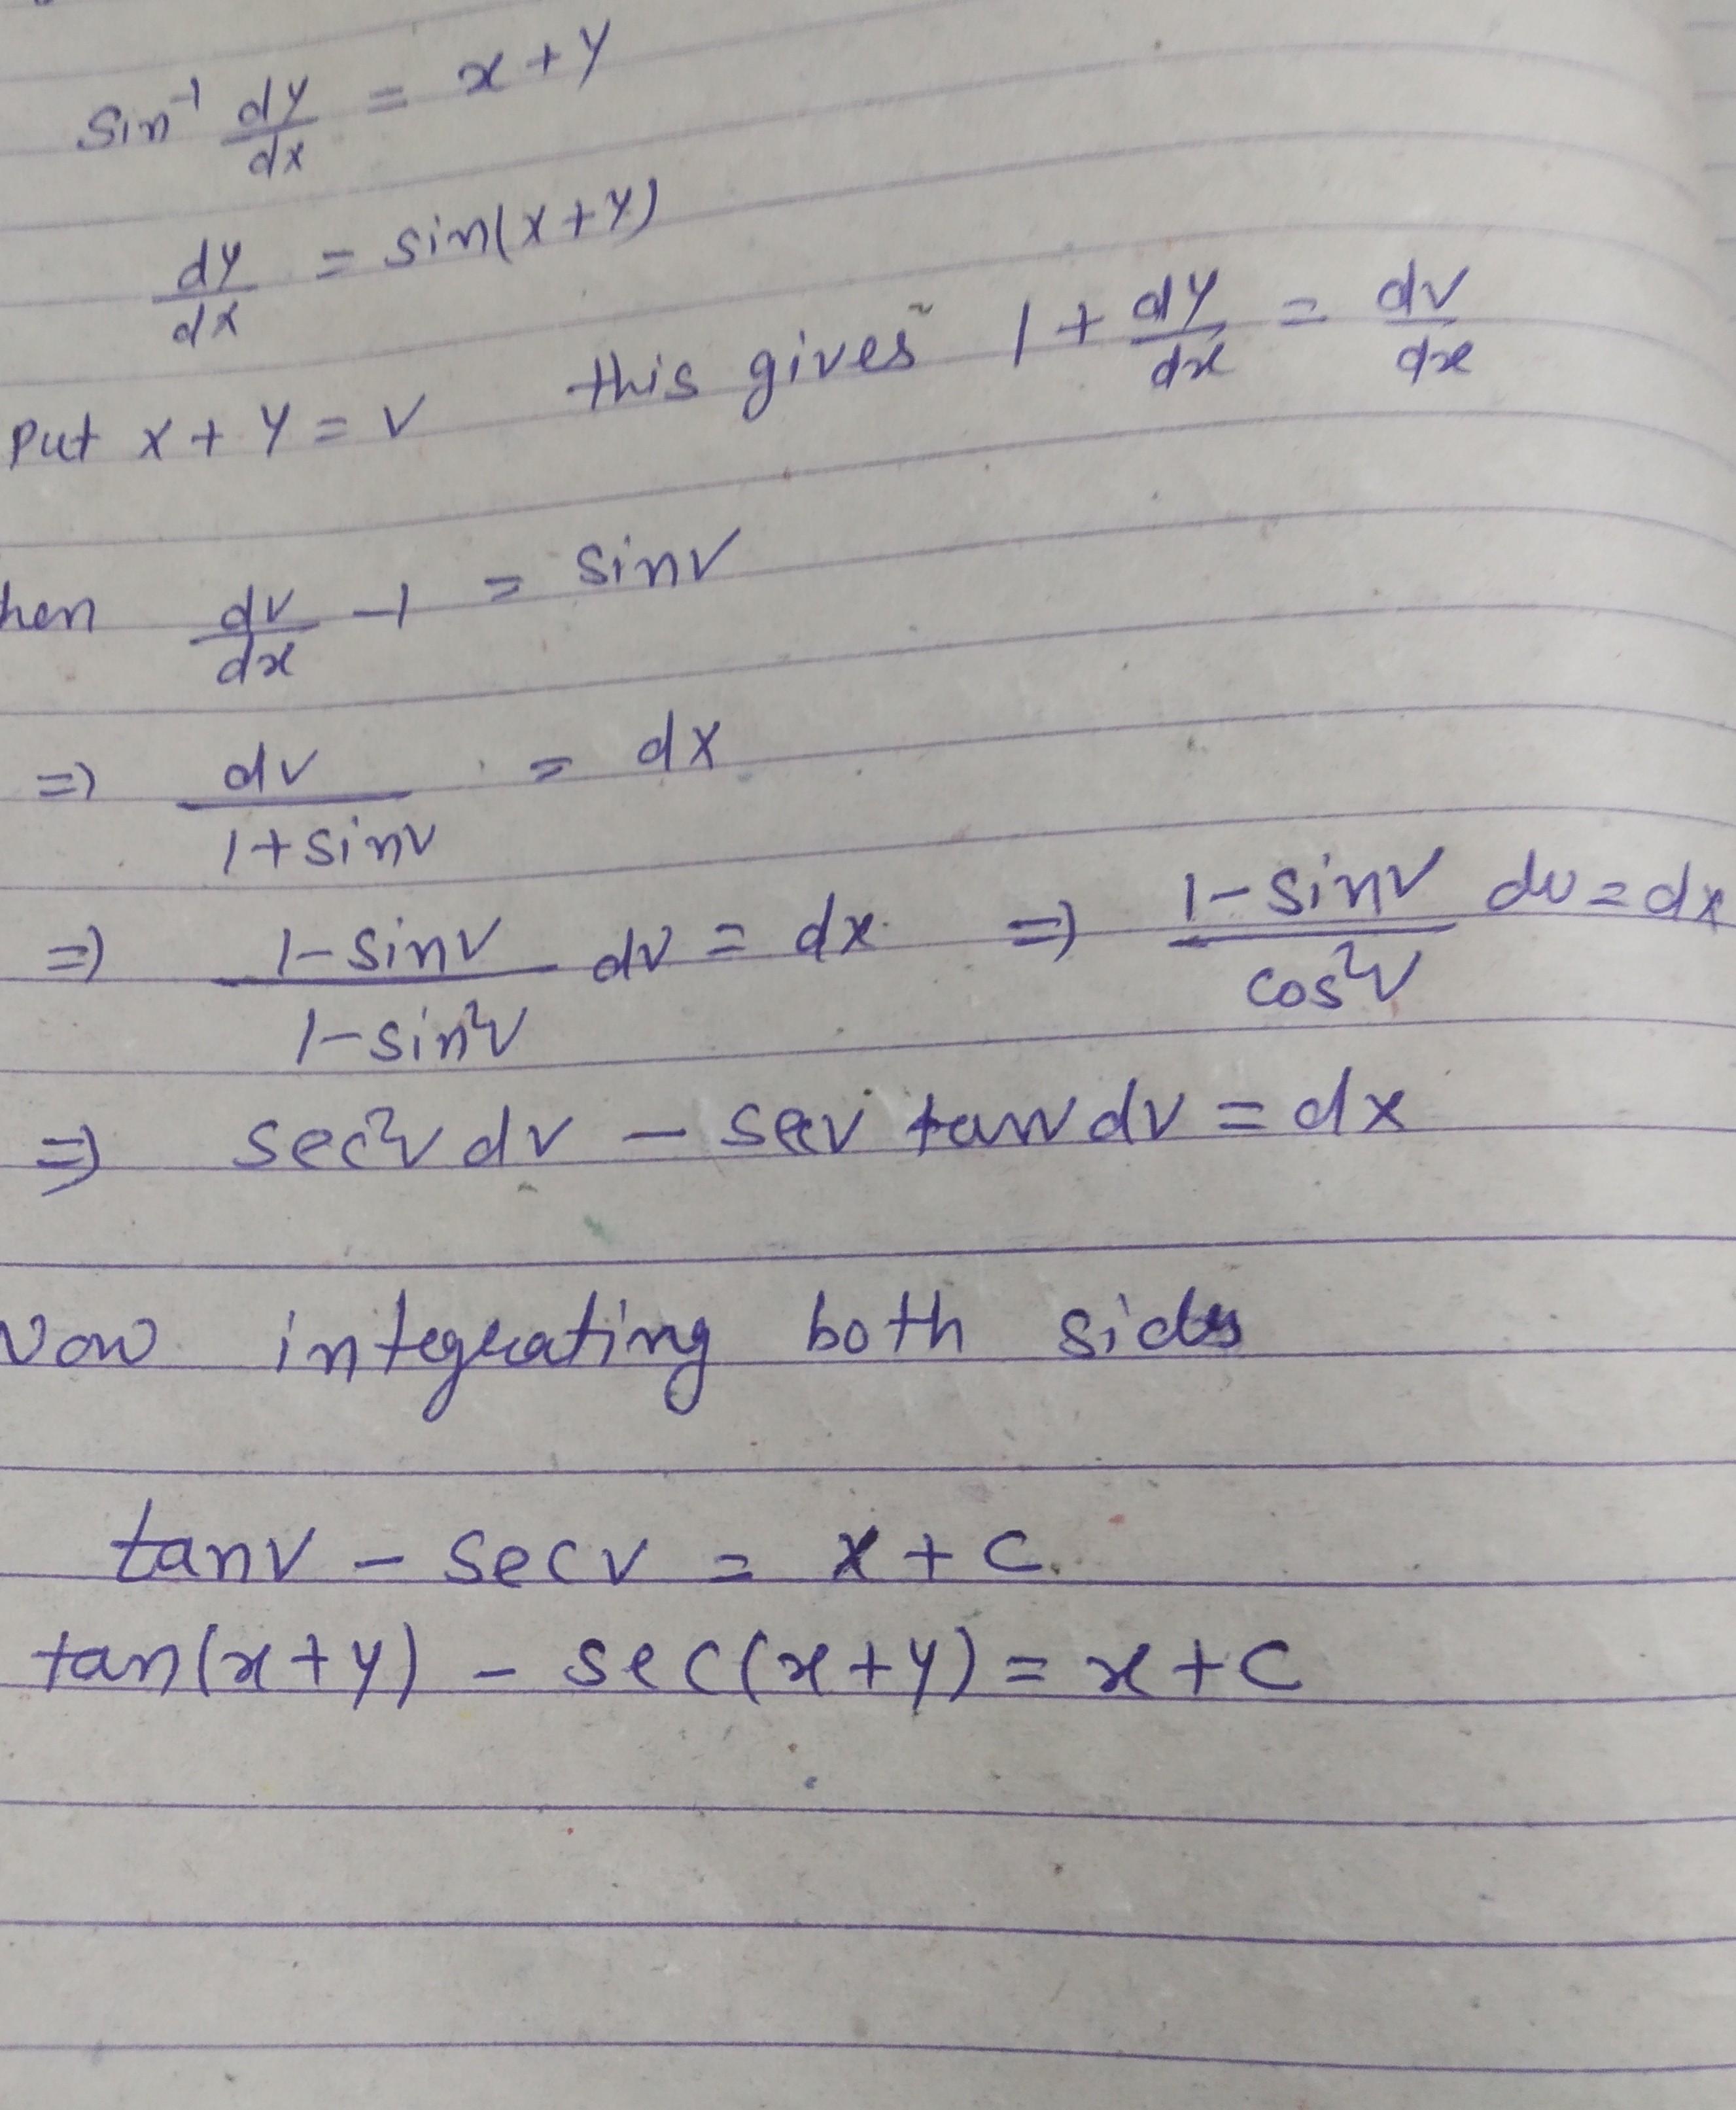 sin⁻¹ dy/dx = x + y
dy/dx = sin(x+y)
Put x + y = v this gives 1 + dy/dx = dv/dx
hen dv/dx - 1 = sinv
=> dv/1+sinv = dx
=> 1-sinv/1-sin²v dv = dx => 1-sinv/cos²v dv = dx
=> sec²v dv - secv tanv dv = dx
Now integrating both sides
tanv - secv = x + c
tan(x+y) - sec(x+y) = x + c